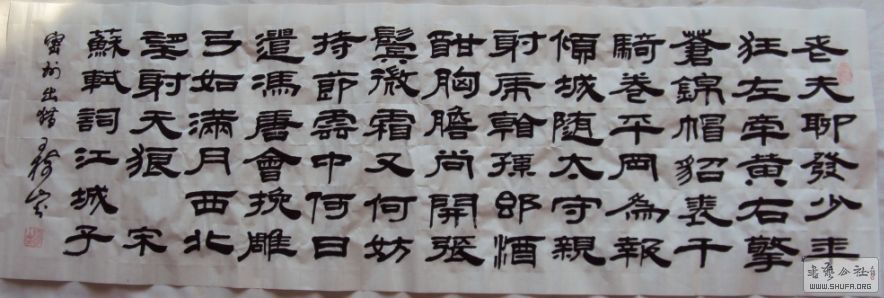 老夫聊發少年
狂左牽黃右擎
蒼錦帽貂裘千
騎卷平岡為報
傾城随太守親
射虎看孫郎酒
酣胸膽尚開張
鬢微霜又何妨
持節雲中何日
遣馮唐會挽雕
弓如滿月西北
望射天狼 宋
蘇軾詞江城子
密州出猎
书艺公社
WWW.SHUFA.ORG